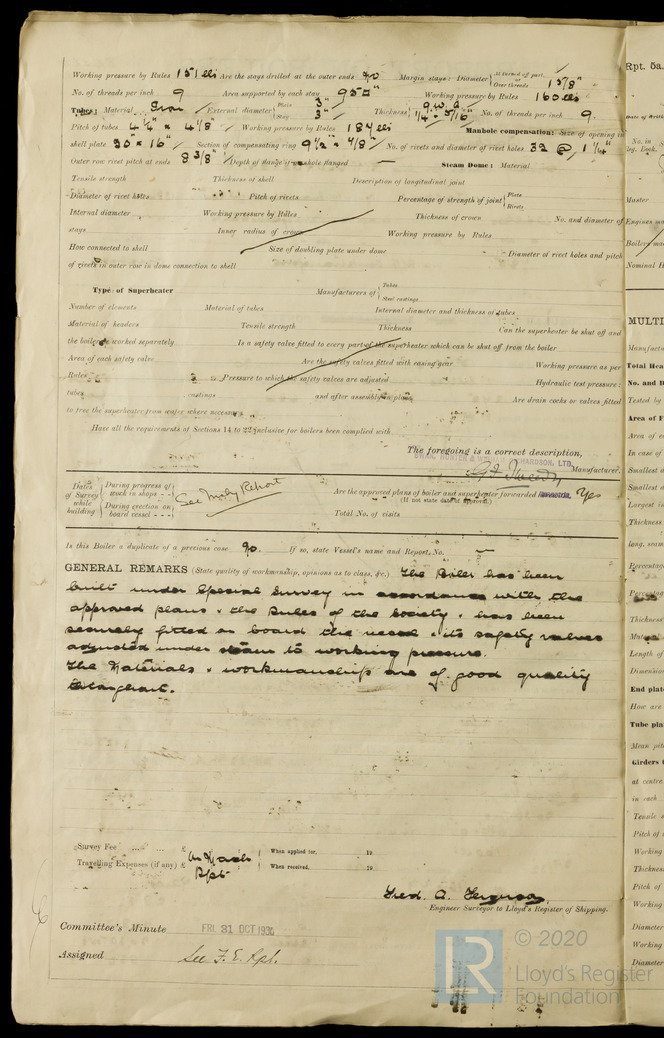 Working pressure by Rules 151 lbs Are the stays drilled at the outer ends No Margin stays: Diameter { At turned off part, or Over threads 1 5/8"
No. of threads per inch 9 Area supported by each stay 95□" Working pressure by Rules 160 lbs
Tubes: Material Iron External diameter { Plain 3" Stay 3" Thickness { 9 W.G. 1/4" & 5/16" No. of threads per inch 9
Pitch of tubes 4 1/4" x 4 1/8" Working pressure by Rules 184 lbs Manhole compensation: Size of opening in
shell plate 20" x 16" Section of compensating ring 9 1/2" x 7/8" No. of rivets and diameter of rivet holes 32 @ 1 1/4"
Outer row rivet pitch at ends 8 3/8" Depth of flange if manhole flanged — Steam Dome: Material
Tensile strength Thickness of shell Description of longitudinal joint
Diameter of rivet holes Pitch of rivets Percentage of strength of joint { Plate Rivets
Internal diameter Working pressure by Rules Thickness of crown No. and diameter of
stays Inner radius of crown Working pressure by Rules
How connected to shell Size of doubling plate under dome Diameter of rivet holes and pitch
of rivets in outer row in dome connection to shell
Type of Superheater Manufacturers of { Tubes Steel castings
Number of elements Material of tubes Internal diameter and thickness of tubes
Material of headers Tensile strength Thickness Can the superheater be shut off and
the boiler be worked separately Is a safety valve fitted to every part of the superheater which can be shut off from the boiler
Area of each safety valve Are the safety valves fitted with easing gear Working pressure as per
Rules Pressure to which the safety valves are adjusted Hydraulic test pressure:
tubes castings and after assembly in place Are drain cocks or valves fitted
to free the superheater from water where necessary
Have all the requirements of Sections 14 to 22 inclusive for boilers been complied with
The foregoing is a correct description,
RICHARDSON, LTD.
Manufacturer.
Dates of Survey while building { During progress of work in shops - - During erection on board vessel - - - See Mchy Report Are the approved plans of boiler and superheater forwarded herewith Yes
(If not state date of approval.)
Total No. of visits
Is this Boiler a duplicate of a previous case No. If so, state Vessel's name and Report No. —
GENERAL REMARKS (State quality of workmanship, opinions as to class, &c.) The Boiler has been
built under Special Survey in accordance with the
approved plans & the Rules of the Society & has been
securely fitted on board the vessel & its safety valves
adjusted under steam to working pressure.
The Materials & workmanship are of good quality
throughout.
Survey Fee ... ... £ On Mach Rpt When applied for, 19
Travelling Expenses (if any) £ When received, 19
Fred. A. Ferguson,
Engineer Surveyor to Lloyd's Register of Shipping.
Committee's Minute FRI. 31 OCT 1930
Assigned See F.E. Rpt.
© 2020
LR Lloyd's Register
Foundation
Rpt. 5a.
No. in
Reg. Book.
Master
Engines ma
Boilers ma
Nominal H
MULTI
Manufactu
Total Hea
No. and D
Tested by
Area of F
Area of
In case of
Smallest d
Smallest d
Largest in
Thickness
long. seam
Percentage
Percentage
Thickness
Material
Length of
Dimension
End plate
How are
Tube pla
Mean pit
Girders t
at centre
in each
Tensile s
Pitch of
Working
Thickness
Pitch of
Working
Diameter
Working
Diameter